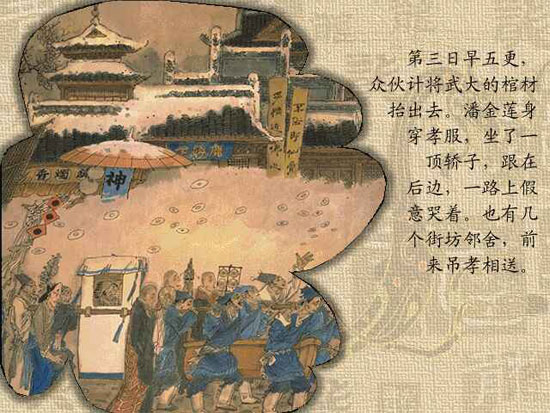 第三日早五更，
众伙计将武大的棺材
抬出去。潘金莲身
穿孝服，坐了一
顶轿子，跟在
后边，一路上假
意哭着。也有几
个街坊邻舍，前
来吊孝相送。
神